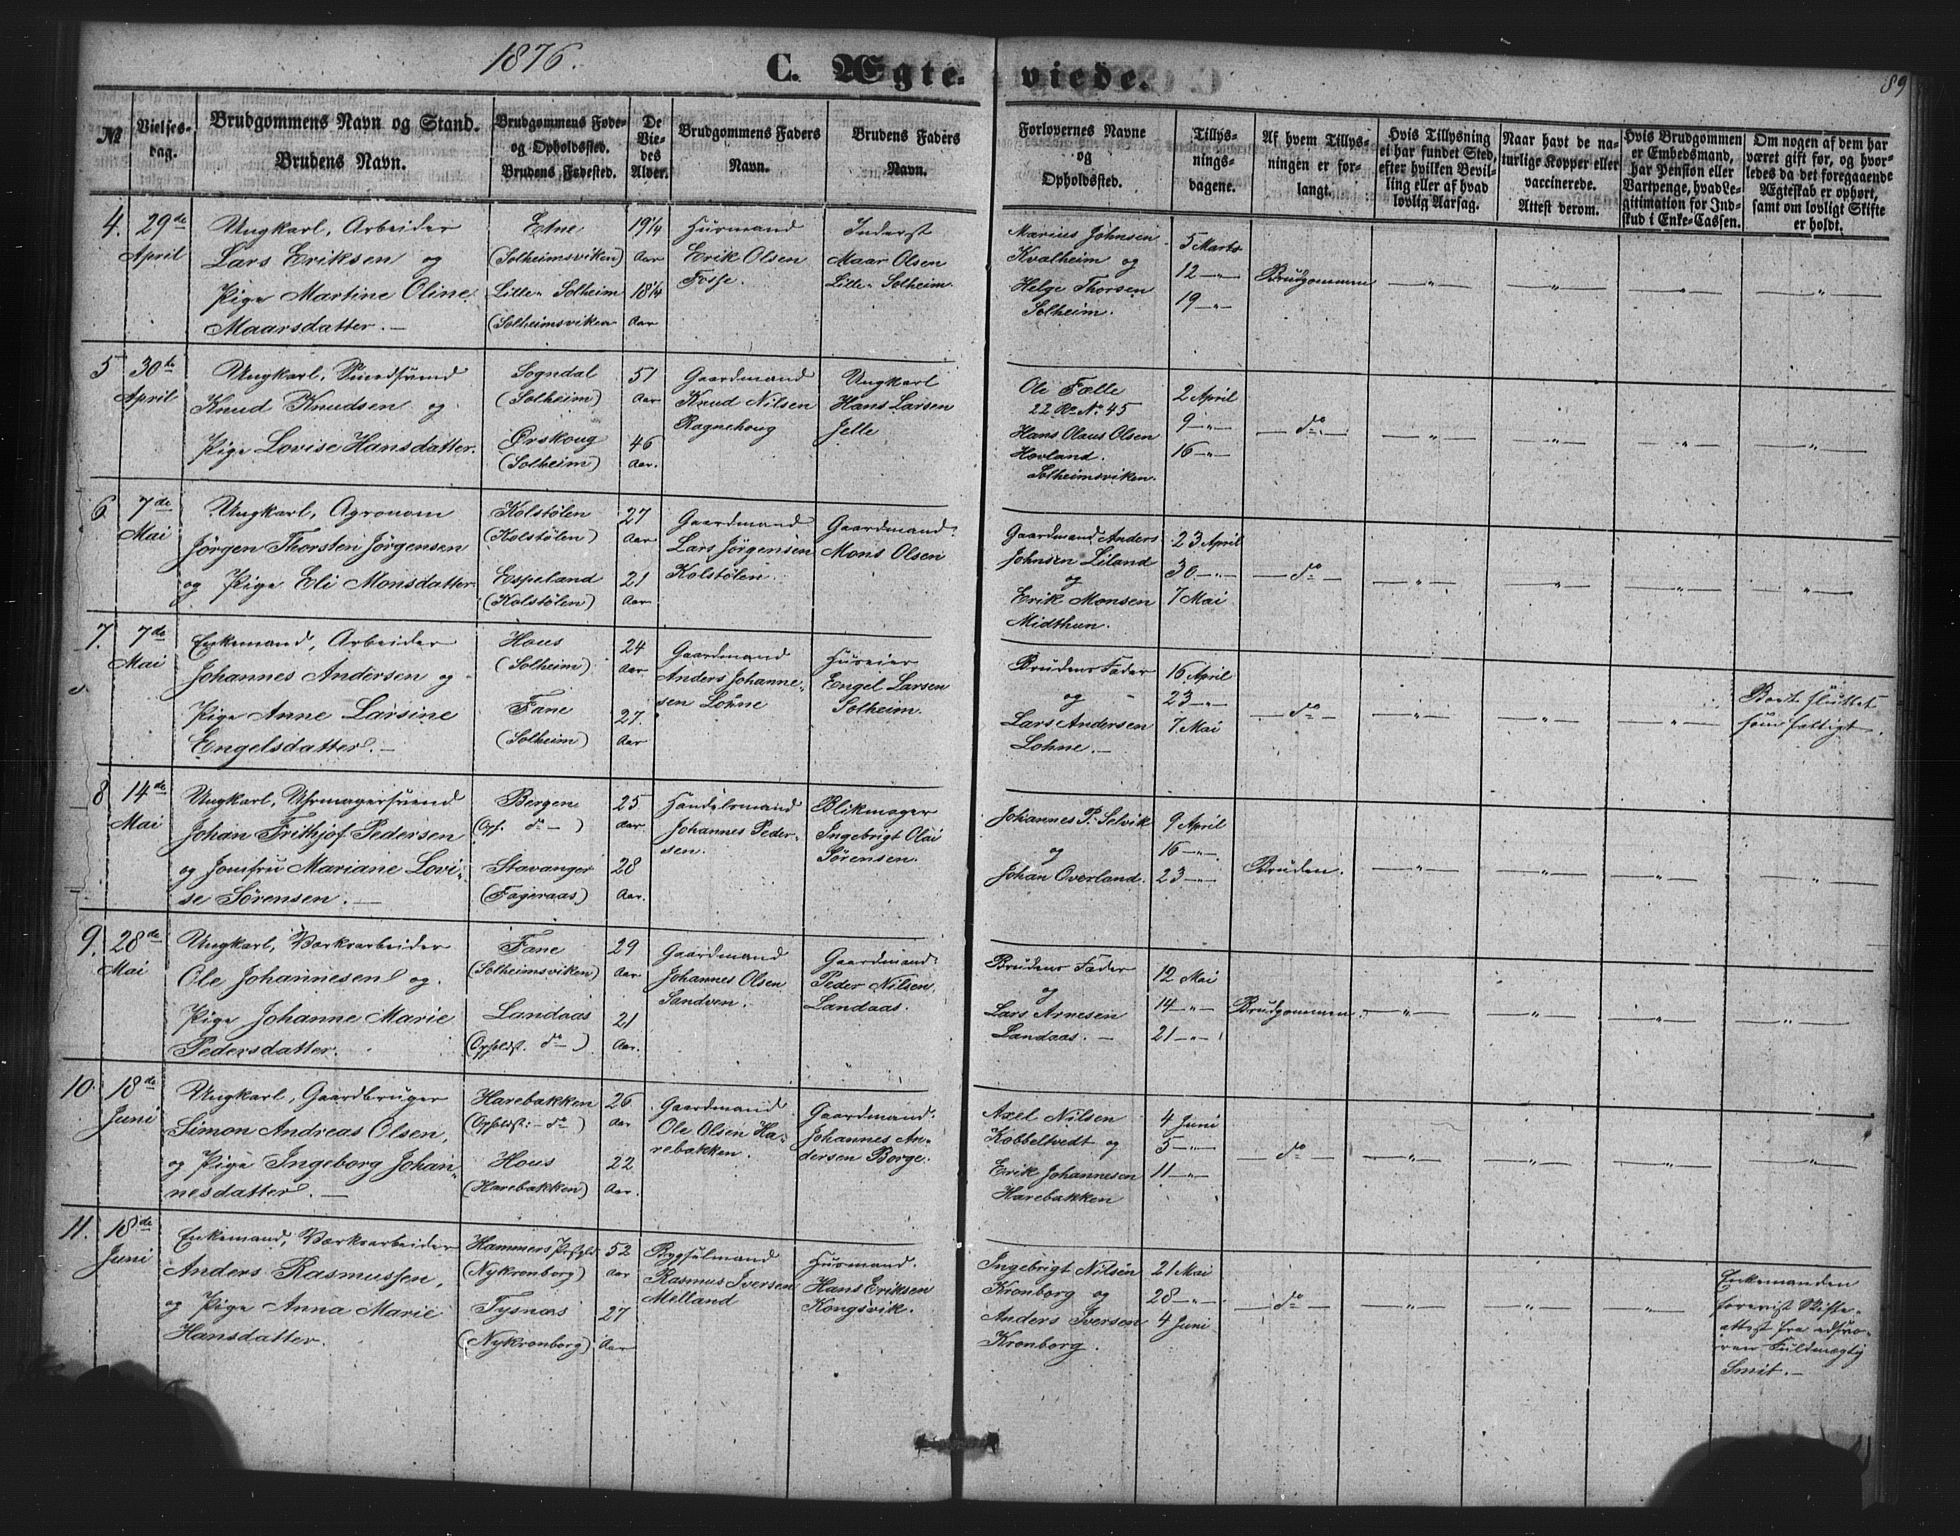 1876.
C. Ægte- viede.
89
№
Vielses-dag.
Brudgommens Navn og Stand.
Brudens Navn.
Brudgommens Føde- og Opholdssted.
Brudens Fødested.
De Viedes Alder.
Brudgommens Faders Navn.
Brudens Faders Navn.
Forlovernes Navne og Opholdssted.
Tillysningsdagene.
Af hvem Tillysningen er forlangt.
Hvis Tillysning ei har fundet Sted, efter hvilken Bevilling eller af hvad lovlig Aarsag.
Naar havt de naturlige Kopper eller vaccinerede. Attest derom.
Hvis Brudgommen er Embedsmand, har Pension eller Vartpenge, hvad Legitimation for Indskud i Enke-Cassen.
Om nogen af dem har været gift før, og hvorledes da det foregaaende Ægteskab er ophørt, samt om lovligt Skifte er holdt.
4. 29de April
Ungkarl, Arbeider
Lars Eriksen og
Pige Martine Oline
Maarsdatter.
Etne
(Solheimsviken)
Lille Solheim
(Solheimsviken
19 1/4 Aar
18 1/4 Aar
Husmand
Erik Olsen
Fosse.
Inderst
Maar Olsen
Lille Solheim.
Marius Johnsen
Kvalheim og
Helge Thorsen
Solheim.
5 Marts
12 —"—
19 —"—
Brudgommen
5 30de April
Ungkarl,
Knud Knudsen og
Pige Lovise Hansdatter.
Sogndal
(Solheim)
Ørskoug
(Solheim)
51 Aar
46 Aar.
Gaardmand
Knud Nilsen
Ragnehoug
Ungkarl
Hans Larsen
Jelle
Ole Fælle
22 Rd No. 45
Hans Olaus Olsen
Hovland.
Solheimsviken.
2 April
9 —"—
16 —"—
do
6. 7de Mai
Ungkarl, Agronom
Jörgen Thorsten Jörgensen
og Pige Eli Monsdatter
Kolstølen
(Kolstølen)
Espeland
(Kolstølen)
27 Aar
21 Aar
Gaardmand
Lars Jörgensen
Kolstølen.
Gaardmand
Mons Olsen
Gaardmand Anders
Johnsen Liland
og
Erik Monsen
Midthun.
23 April
30 —"—
7 Mai
do
7. 7de Mai
Enkemand, Arbeider
Johannes Andersen og
Pige Anne Larsine
Engelsdatter.
Hous
(Solheim)
Fane
(Solheim)
24 Aar
27. Aar
Gaardmand
Anders Johanne-
sen Lohne
Huseier
Engel Larsen
Solheim.
Brudens Fader
og
Lars Andersen
Lohne.
16 April
23 —"—
7 Mai
do
Boet sluttet
som fattigt.
8 14de Mai
Ungkarl, Uhrmagersvend
Johan Frithjof Pedersen
og Jomfru Mariane Lovi-
se Sørensen.
Bergen
(Opf. do — )
Stavanger
(Fageraas)
25 Aar.
28 Aar.
Handelsmand
Johannes Peder-
sen.
Blikmager
Ingebrigt Olai
Sørensen.
Johannes P. Selvik
og
Johan Overland.
9 April
16 —"—
23 —"—
Bruden
9. 28de Mai
Ungkarl, Værksarbeider
Ole Johannesen og
Pige Johanne Marie
Pedersdatter.
Fane
(Solheimsviken)
Landaas
(Opholdst. do —)
29 Aar
21 Aar.
Gaardmand
Johannes Olsen
Sandven.
Gaardmand
Peder Nilsen
Landaas.
Brudens Fader
og
Lars Arnesen
Landaas.
12 Mai
14 —"—
21 —"—
Brudgommen
10. 18de Juni
Ungkarl, Gaardbruger
Simon Andreas Olsen,
og Pige Ingeborg Johan-
nesdatter.
Harebakken
(Opholdst: — do )
Hous
(Harebakken)
26 Aar
22 Aar.
Gaardmand
Ole Olsen Ha-
rebakken.
Gaardmand
Johannes An-
dersen Borge.
Axel Nilsen
Kobbeltvedt og
Erik Johannesen
Harebakken
4 Juni
5 —"—
11 —"—
do
11. 18de Juni
Enkemand, Værksarbeider
Anders Rasmussen,
og Pige Anna Marie
Hansdatter.
Hammers
(Nykronborg)
Tysnæs
(Nykronborg)
52 Aar
27 Aar
Bygselmand
Rasmus Iversen
Melland
Husmand.
Hans Eriksen
Kongsvik.
Ingebrigt Nilsen
Kronborg og
Anders Iversen
Kronborg.
21 Mai
28 —"—
4 Juni
do
Enkemanden
forevist Skifte-
attest fra edsvo-
ren Fuldmægtig
Smit.